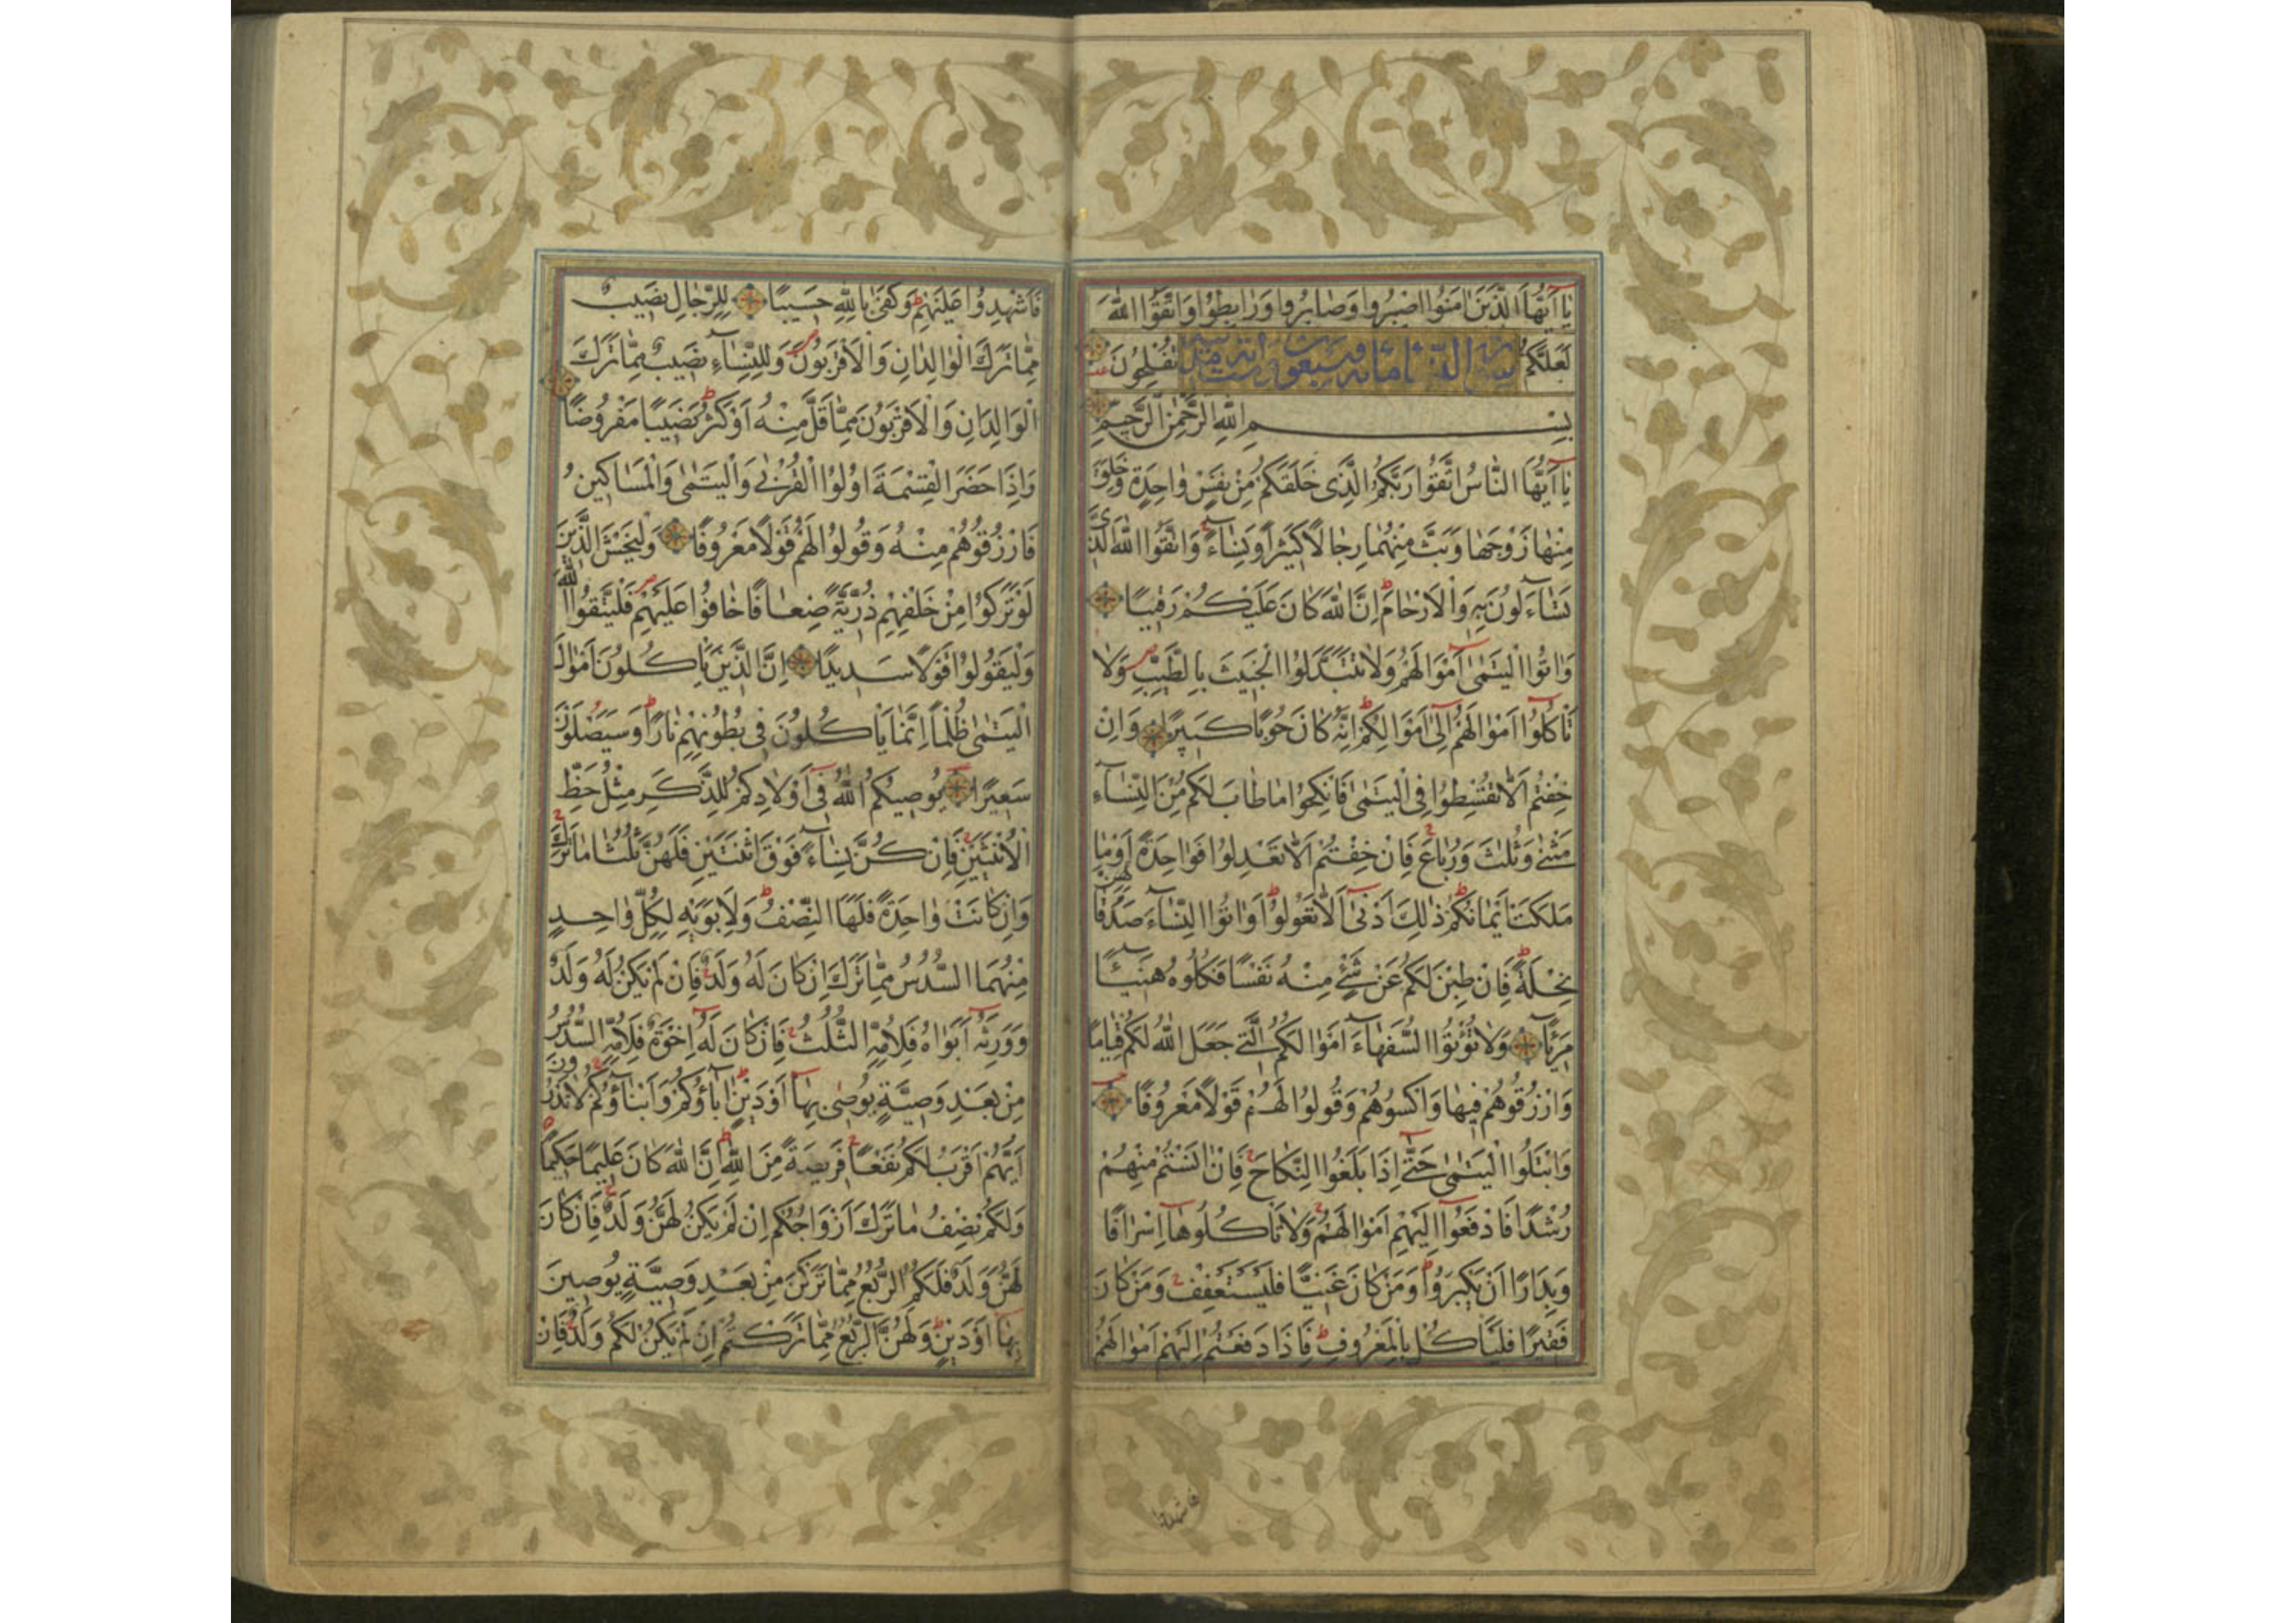 يَا أَيُّهَا الَّذِينَ اٰمَنُوا اصْبِرُوا وَصَابِرُوا وَرَابِطُوا وَاتَّقُوا اللّٰهَ
لَعَلَّكُمْ تُفْلِحُونَ
بِسْمِ اللّٰهِ الرَّحْمٰنِ الرَّحِيمِ
يَا أَيُّهَا النَّاسُ اتَّقُوا رَبَّكُمُ الَّذِى خَلَقَكُمْ مِنْ نَفْسٍ وَاحِدَةٍ وَخَلَقَ
مِنْهَا زَوْجَهَا وَبَثَّ مِنْهُمَا رِجَالًا كَثِيرًا وَنِسَاءً وَاتَّقُوا اللّٰهَ الَّذِى
تَسَاءَلُونَ بِهِ وَالْاَرْحَامَ اِنَّ اللّٰهَ كَانَ عَلَيْكُمْ رَقِيبًا
وَاٰتُوا الْيَتٰمٰى اَمْوَالَهُمْ وَلَا تَتَبَدَّلُوا الْخَبِيثَ بِالطَّيِّبِ وَلَا
تَأْكُلُوا اَمْوَالَهُمْ اِلٰى اَمْوَالِكُمْ اِنَّهُ كَانَ حُوبًا كَبِيرًا وَاِنْ
خِفْتُمْ اَلَّا تُقْسِطُوا فِى الْيَتٰمٰى فَانْكِحُوا مَا طَابَ لَكُمْ مِنَ النِّسَاءِ
مَثْنٰى وَثُلٰثَ وَرُبَاعَ فَاِنْ خِفْتُمْ اَلَّا تَعْدِلُوا فَوَاحِدَةً اَوْ مَا
مَلَكَتْ اَيْمَانُكُمْ ذٰلِكَ اَدْنٰى اَلَّا تَعُولُوا وَاٰتُوا النِّسَاءَ صَدُقَاتِهِنَّ
نِحْلَةً فَاِنْ طِبْنَ لَكُمْ عَنْ شَىْءٍ مِنْهُ نَفْسًا فَكُلُوهُ هَنِيئًا
مَرِيئًا وَلَا تُؤْتُوا السُّفَهَاءَ اَمْوَالَكُمُ الَّتِى جَعَلَ اللّٰهُ لَكُمْ قِيَامًا
وَارْزُقُوهُمْ فِيهَا وَاكْسُوهُمْ وَقُولُوا لَهُمْ قَوْلًا مَعْرُوفًا
وَابْتَلُوا الْيَتٰمٰى حَتّٰى اِذَا بَلَغُوا النِّكَاحَ فَاِنْ اٰنَسْتُمْ مِنْهُمْ
رُشْدًا فَادْفَعُوا اِلَيْهِمْ اَمْوَالَهُمْ وَلَا تَأْكُلُوهَا اِسْرَافًا
وَبِدَارًا اَنْ يَكْبَرُوا وَمَنْ كَانَ غَنِيًّا فَلْيَسْتَعْفِفْ وَمَنْ كَانَ
فَقِيرًا فَلْيَأْكُلْ بِالْمَعْرُوفِ فَاِذَا دَفَعْتُمْ اِلَيْهِمْ اَمْوَالَهُمْ
فَاَشْهِدُوا عَلَيْهِمْ وَكَفٰى بِاللّٰهِ حَسِيبًا لِلرِّجَالِ نَصِيبٌ
مِمَّا تَرَكَ الْوَالِدَانِ وَالْاَقْرَبُونَ وَلِلنِّسَاءِ نَصِيبٌ مِمَّا تَرَكَ
الْوَالِدَانِ وَالْاَقْرَبُونَ مِمَّا قَلَّ مِنْهُ اَوْ كَثُرَ نَصِيبًا مَفْرُوضًا
وَاِذَا حَضَرَ الْقِسْمَةَ اُولُوا الْقُرْبٰى وَالْيَتٰمٰى وَالْمَسَاكِينُ
فَارْزُقُوهُمْ مِنْهُ وَقُولُوا لَهُمْ قَوْلًا مَعْرُوفًا وَلْيَخْشَ الَّذِينَ
لَوْ تَرَكُوا مِنْ خَلْفِهِمْ ذُرِّيَّةً ضِعَافًا خَافُوا عَلَيْهِمْ فَلْيَتَّقُوا اللّٰهَ
وَلْيَقُولُوا قَوْلًا سَدِيدًا اِنَّ الَّذِينَ يَأْكُلُونَ اَمْوَالَ
الْيَتٰمٰى ظُلْمًا اِنَّمَا يَأْكُلُونَ فِى بُطُونِهِمْ نَارًا وَسَيَصْلَوْنَ
سَعِيرًا يُوصِيكُمُ اللّٰهُ فِى اَوْلَادِكُمْ لِلذَّكَرِ مِثْلُ حَظِّ
الْاُنْثَيَيْنِ فَاِنْ كُنَّ نِسَاءً فَوْقَ اثْنَتَيْنِ فَلَهُنَّ ثُلُثَا مَا تَرَكَ
وَاِنْ كَانَتْ وَاحِدَةً فَلَهَا النِّصْفُ وَلِاَبَوَيْهِ لِكُلِّ وَاحِدٍ
مِنْهُمَا السُّدُسُ مِمَّا تَرَكَ اِنْ كَانَ لَهُ وَلَدٌ فَاِنْ لَمْ يَكُنْ لَهُ وَلَدٌ
وَوَرِثَهُ اَبَوَاهُ فَلِاُمِّهِ الثُّلُثُ فَاِنْ كَانَ لَهُ اِخْوَةٌ فَلِاُمِّهِ السُّدُسُ
مِنْ بَعْدِ وَصِيَّةٍ يُوصٰى بِهَا اَوْ دَيْنٍ اٰبَاؤُكُمْ وَاَبْنَاؤُكُمْ لَا تَدْرُونَ
اَيُّهُمْ اَقْرَبُ لَكُمْ نَفْعًا فَرِيضَةً مِنَ اللّٰهِ اِنَّ اللّٰهَ كَانَ عَلِيمًا حَكِيمًا
وَلَكُمْ نِصْفُ مَا تَرَكَ اَزْوَاجُكُمْ اِنْ لَمْ يَكُنْ لَهُنَّ وَلَدٌ فَاِنْ كَانَ
لَهُنَّ وَلَدٌ فَلَكُمُ الرُّبُعُ مِمَّا تَرَكْنَ مِنْ بَعْدِ وَصِيَّةٍ يُوصِينَ
بِهَا اَوْ دَيْنٍ وَلَهُنَّ الرُّبُعُ مِمَّا تَرَكْتُمْ اِنْ لَمْ يَكُنْ لَكُمْ وَلَدٌ فَاِنْ
فاشهدوا